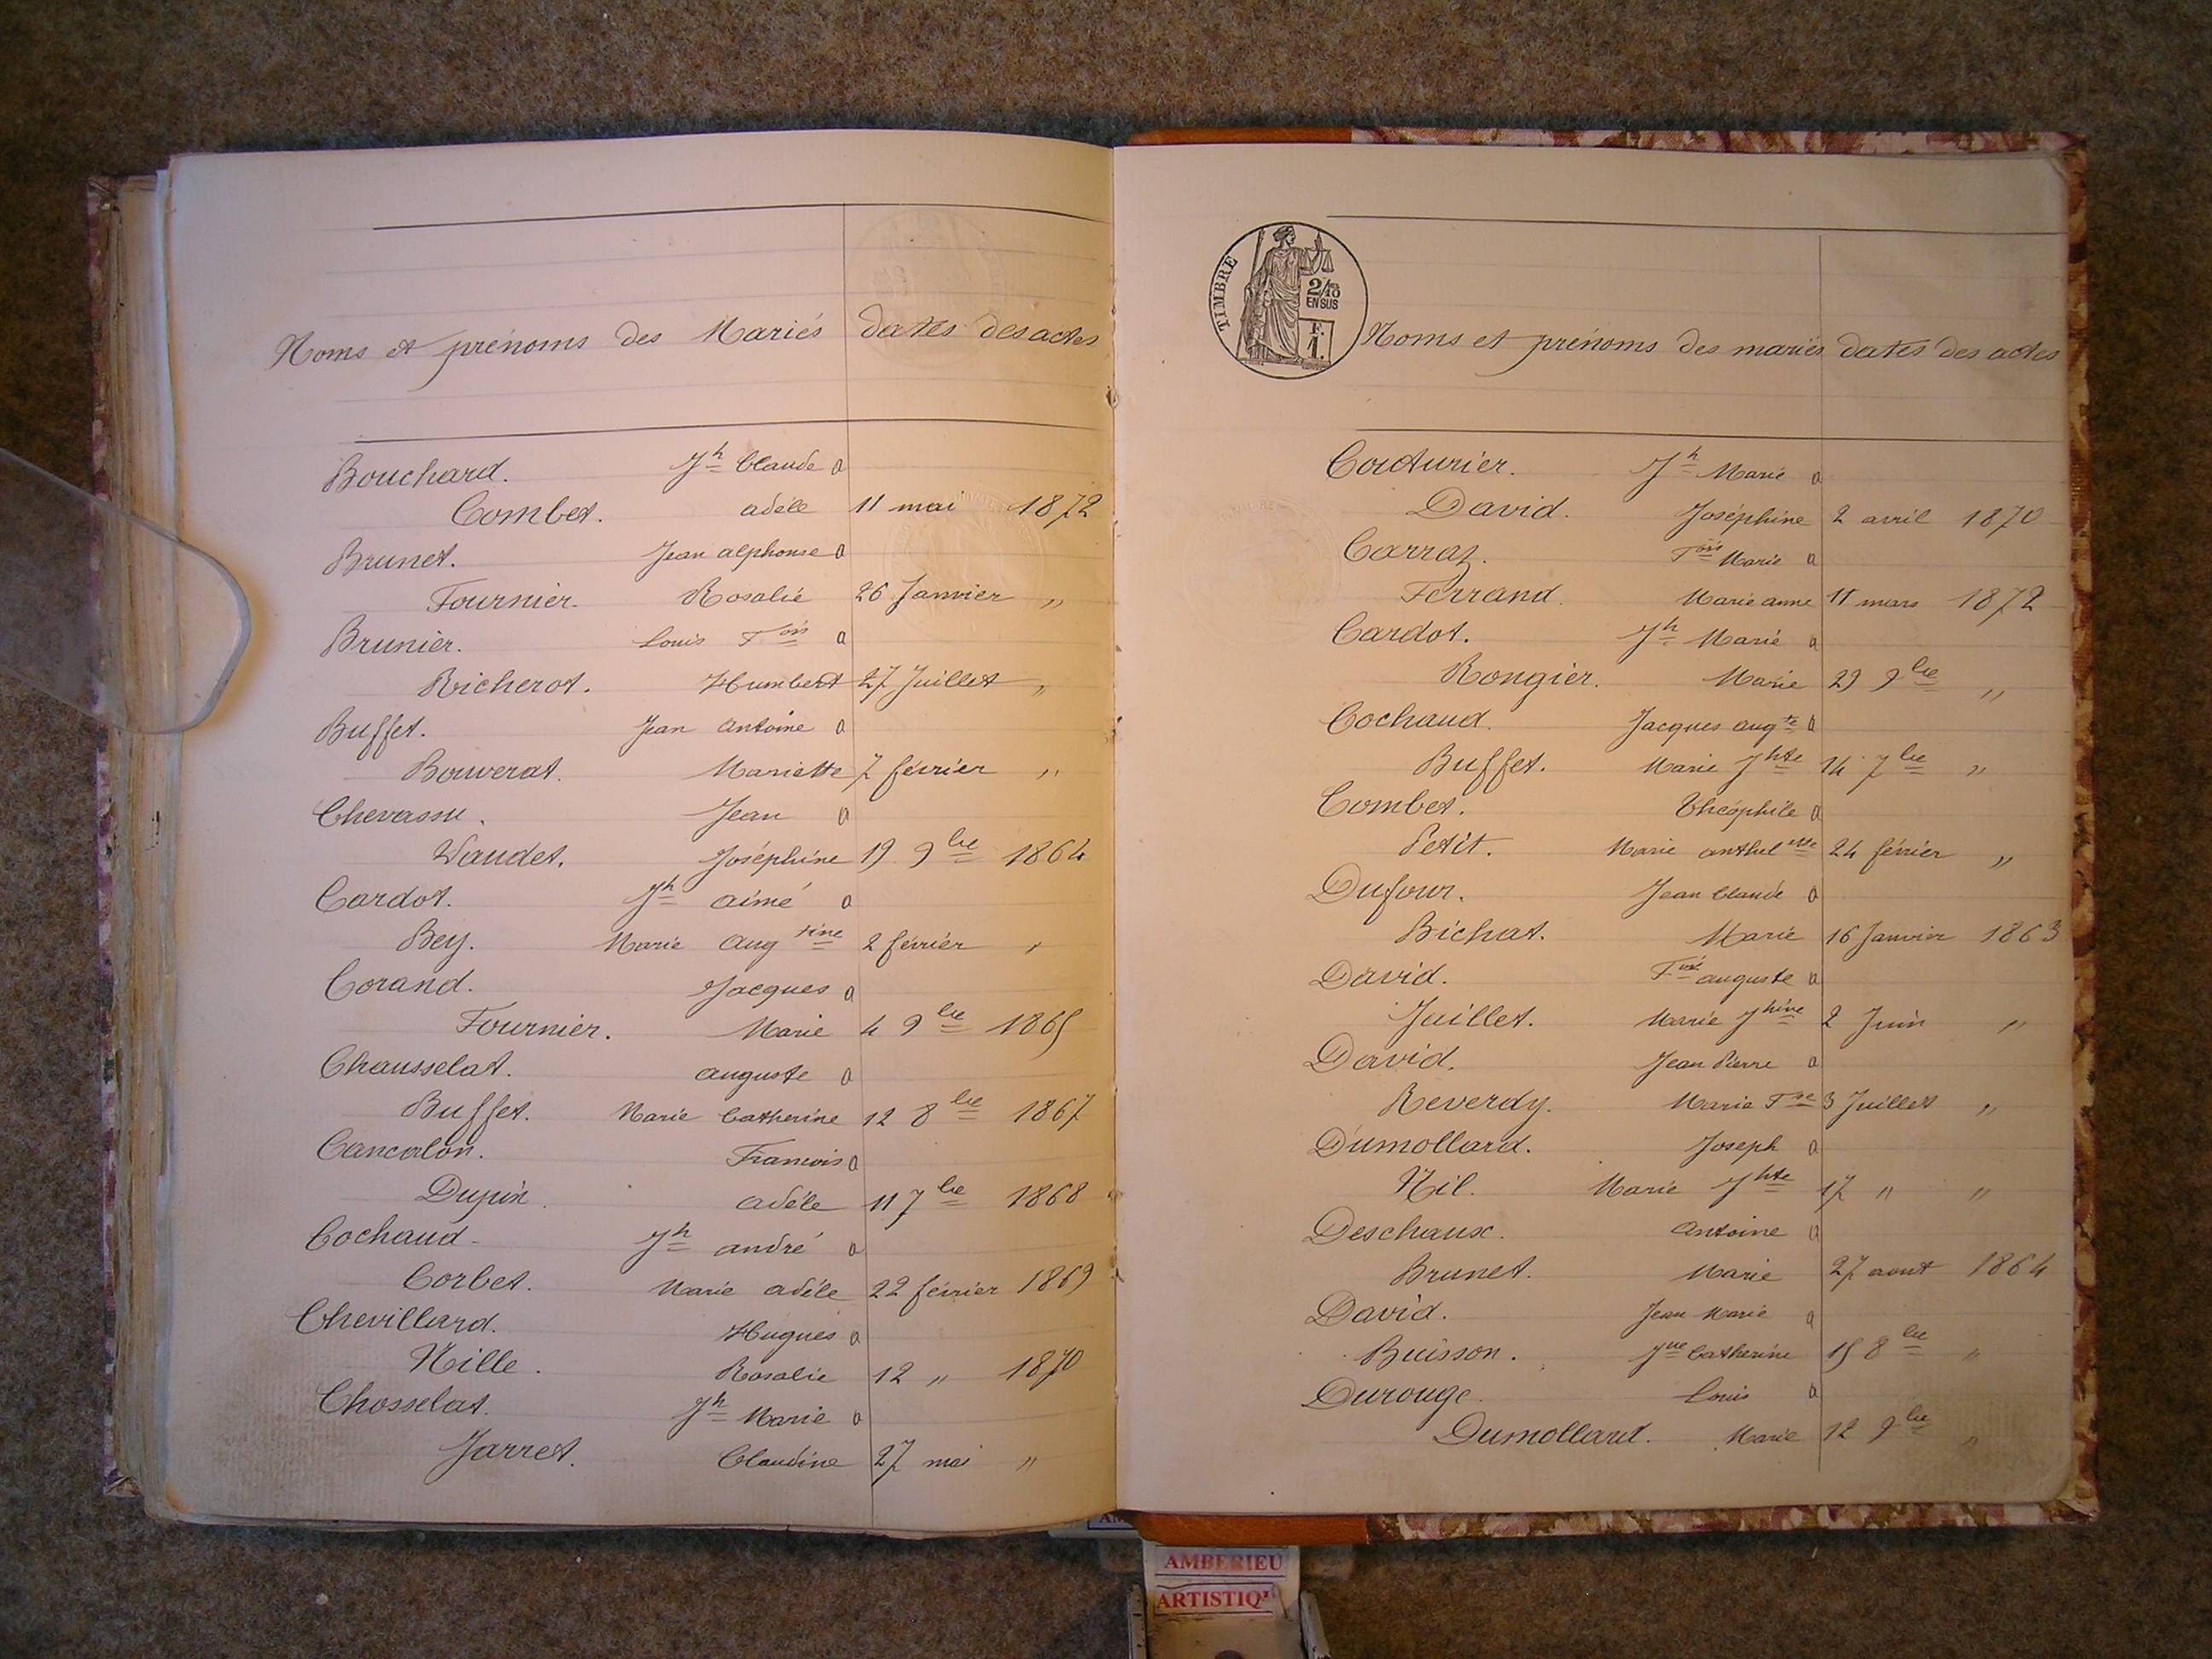 Noms et prénoms des Mariés dates des actes
Bouchard. Jh Claude a
Combet. adèle 11 mai 1872
Brunet. Jean alphonse a
Fournier. Rosalie 26 Janvier "
Brunier. Louis Fois a
Richerot. Humbert 27 Juillet "
Buffet. Jean Antoine a
Bouverat. Mariette 7 février "
Chevassu. Jean a
Vaudet. Joséphine 19 9bre 1864
Cardot. Jh aimé a
Bey. Marie Augtine 2 février "
Corand. Jacques a
Fournier. Marie 4 9bre 1865
Chausselat. auguste a
Buffet. Marie Catherine 12 8bre 1867
Cancalon. Francois a
Dupin. adèle 11 7bre 1868
Cochaud. Jh andré a
Corbet. Marie adèle 22 février 1869
Chevillard. Hugues a
Nille. Rosalie 12 " 1870
Chosselat. Jh Marie a
Jarret. Claudine 27 mai "
TIMBRE
2/10
EN SUS
F.
1.
Noms et prénoms des mariés dates des actes
Couturier. Jh Marie a
David. Joséphine 2 avril 1870
Carraz. Fois Marie a
Ferrand. Marie anne 11 mars 1872
Cardot. Jh Marie a
Rongier. Marie 29 9bre "
Cochaud. Jacques augte a
Buffet. Marie Jhte 14 7bre "
Combet. Théophile a
Petit. Marie anthelette 24 février "
Dufour. Jean Claude a
Bichat. Marie 16 Janvier 1863
David. auguste a
Juillet. Marie Jhine 2 Juin "
David. Jean Pierre a
Reverdy. Marie Fse 3 Juillet "
Dumollard. Joseph a
Nil. Marie Jhte 17 " "
Deschaux. Antoine a
Brunet. Marie 27 aout 1864
David. Jean Marie a
Buisson. Jne Catherine 15 8bre "
Durouge. Louis a
Dumollard. Marie 12 9bre "
AMBERIEU
ARTISTIQ